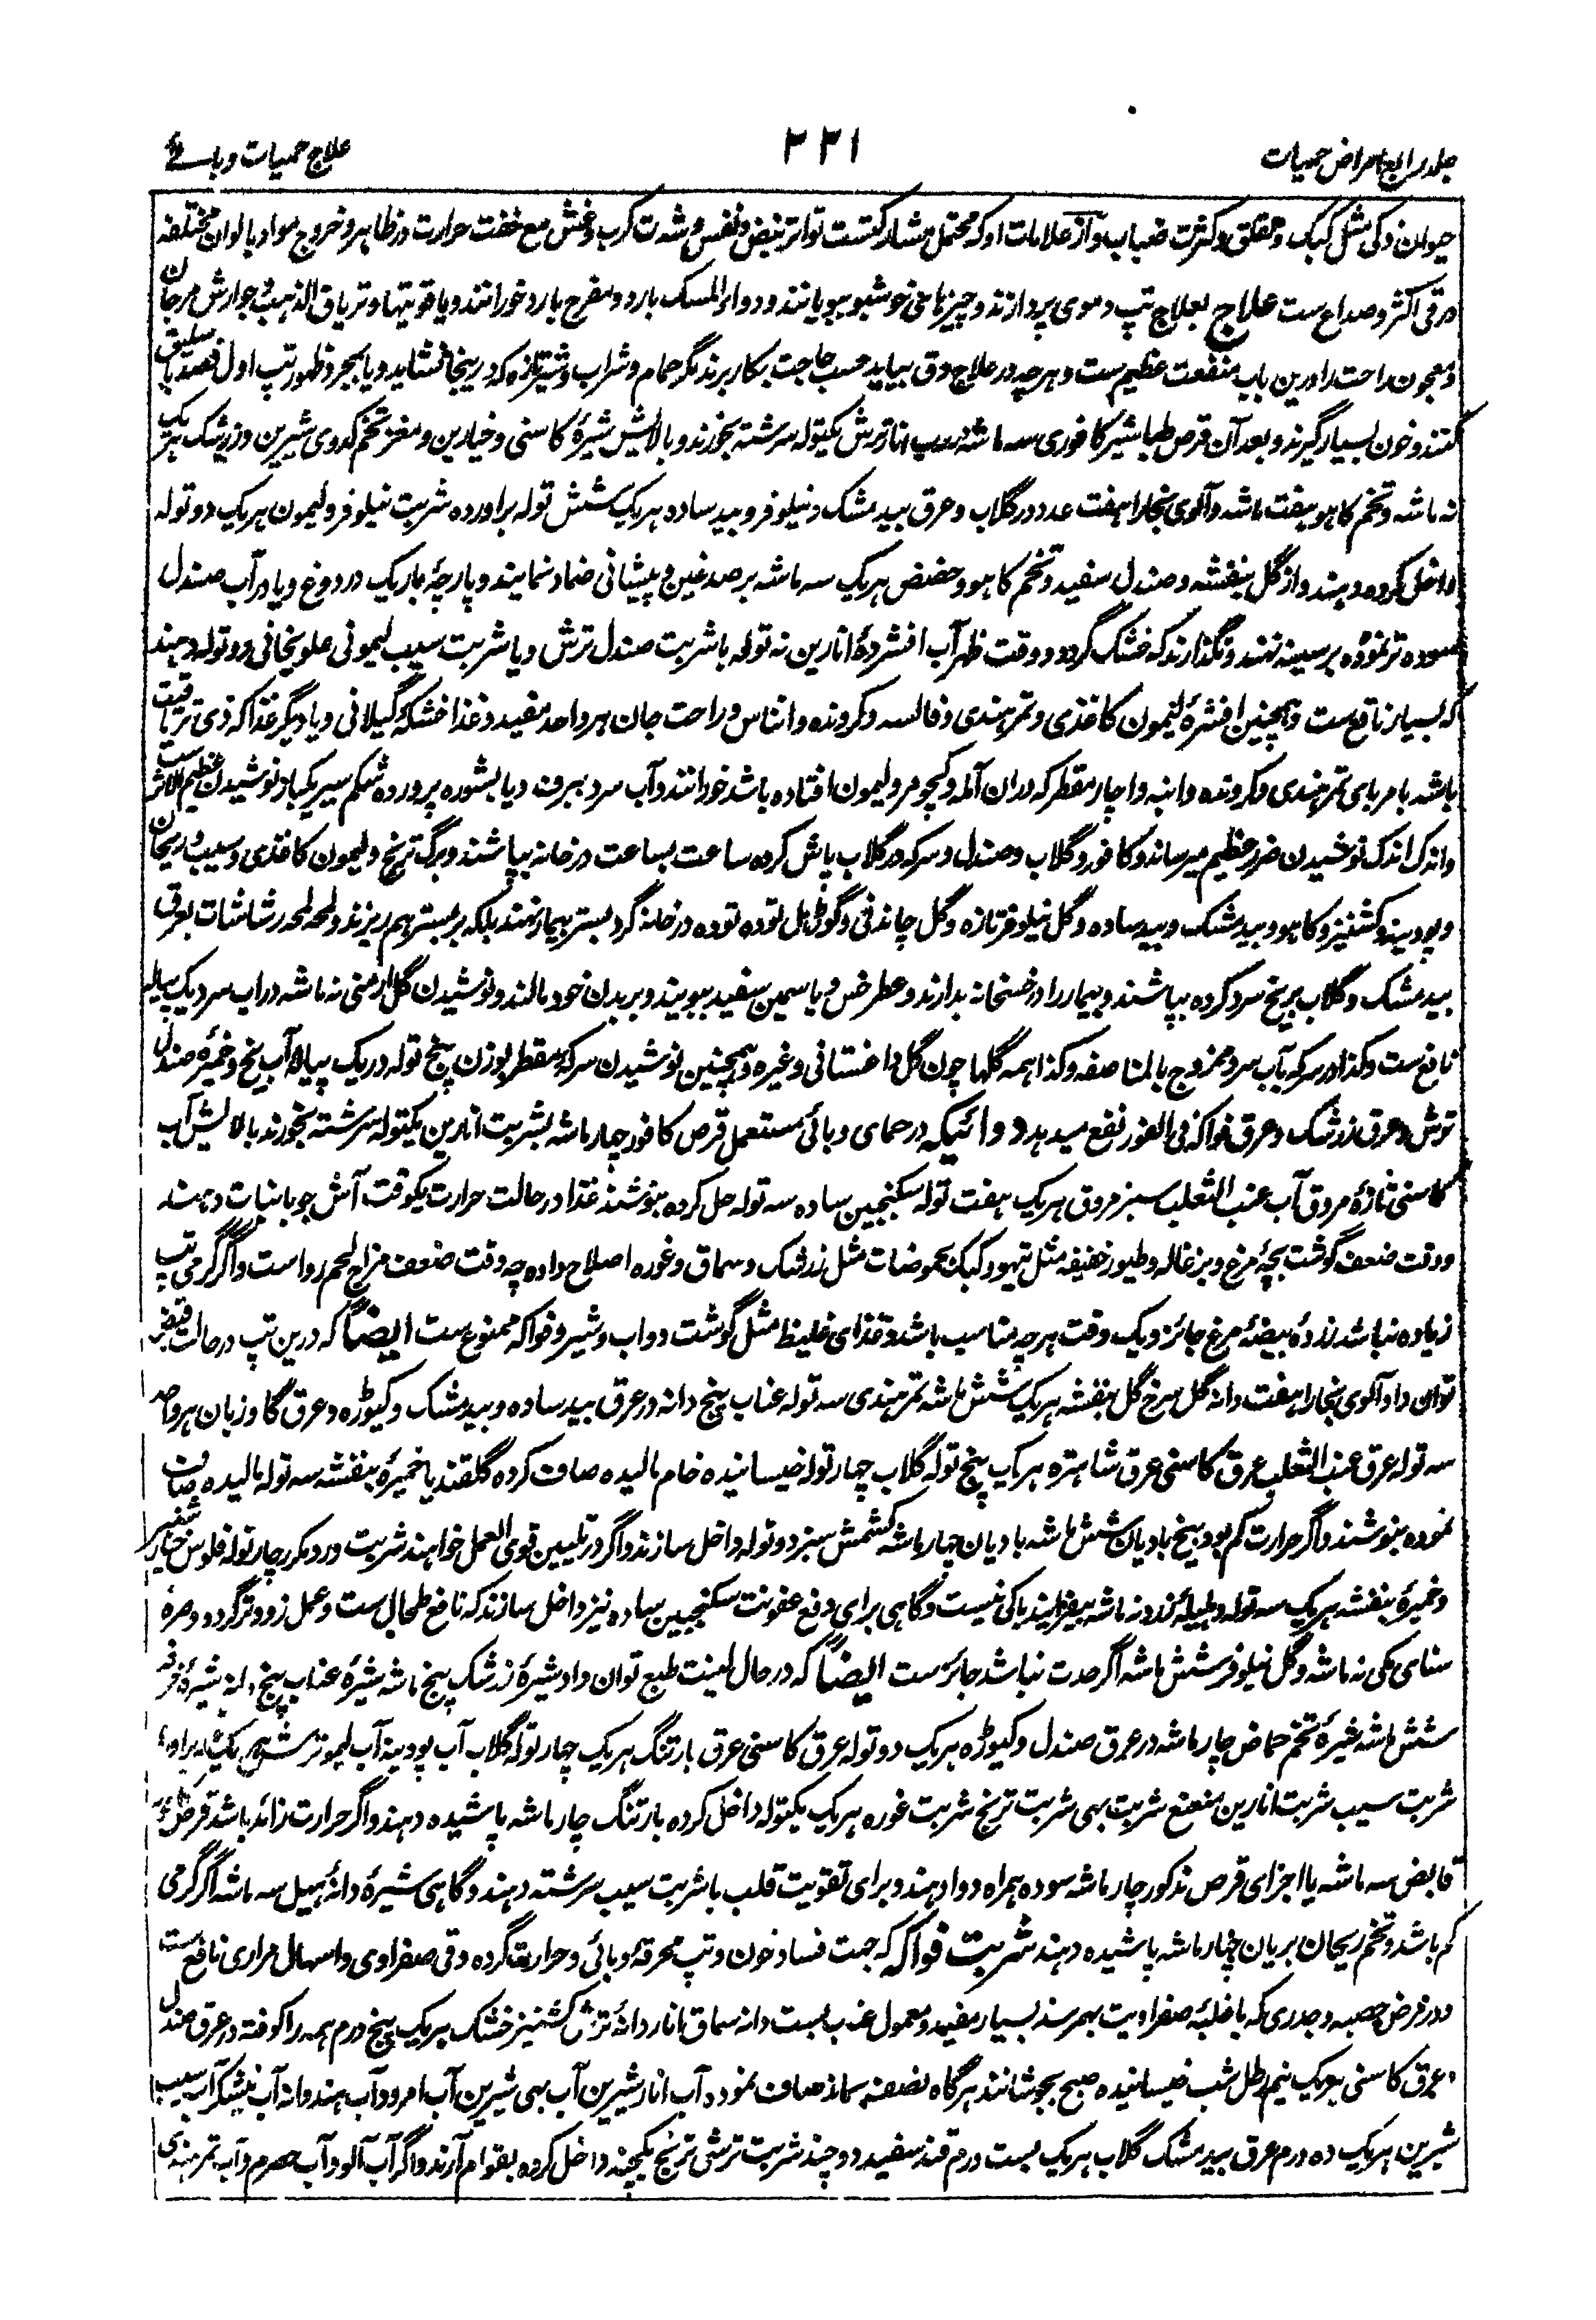 جلد رابع امراض حمیات
۲۳۱
علاج حمیات وبائے
حیوان ذکی مثل کبک و لقلق و کثرت ضباب و آنز علامات او که محتمل مشارکتست تواتر نبض و نفس و شدت کرب و غش مع خفت حرارت در ظاهر و خروج مواد بالوان مختلفه
درقی اکثر و صداع ست علاج بعلاج تپ دموی پردازند و چیزهای خوشبو ببویانند و دواء المسک بارد و مفرح بارد خورانند و یاقوتیها و تریاق الذهب و جوارش مرجان
و معجون راحت را درین باب منفعت عظیم ست و هرچه در علاج دق بیاید حسب حاجت بکار برند مگر حمام و شراب و شیر تازه که درینجا نشاید و یا بمجرد ظهور تپ اول فصد باسلیق
کنند و خون بسیار گیرند و بعد آن قرص طباشیر کافوری سه ماشه برب انار ترش یکتوله سرشته بخورند و بالایش شیرهٔ کاسنی و خیارین و مغز تخم کدوی شیرین و زرشک هر یک
نه ماشه و تخم کاهو هفت ماشه و آلوی بخارا هفت عدد در گلاب و عرق بید مشک و نیلوفر و بید ساده هر یک شش توله براورده شربت نیلوفر و لیمون هر یک دو توله
داخل کرده دهند و از گل بنفشه و صندل سفید و تخم کاهو و حضض هر یک سه ماشه بر صدغین و پیشانی ضماد نمایند و پارچهٔ باریک در دوغ و یا در آب صندل
سوده تر نموده بر سینه نهند و نگذارند که خشک گردد و وقت ظهر آب افشردهٔ انارین نه توله با شربت صندل ترش و یا شربت سیب لیمونی علویخانی دو توله دهند
که بسیار نافع ست و همچنین افشرهٔ لیمون کاغذی و تمر هندی و فالسه و کرونده و انناس و راحت جان هر واحد مفید و غذا خشکهٔ گیلانی و یا دیگر غذا که ذی تریاقیت
باشد با مربای تمر هندی و کرونده و انبه و اچار مقطر که دران آمله و کچومر و لیمون افتاده باشد خورانند و آب سرد ببرف و یا بشوره پرورده شکم سیر یکبار نوشیدن عظیم الاثر ست
و اندک اندک نوشیدن ضرر عظیم میرساند و کافور و گلاب و صندل و سرکه در گلاب پاش کرده ساعت بساعت در خانه بپاشند و برگ ترنج و لیمون کاغذی و سیب و ریحان
و پودینه و کشنیز و کاهو و بید مشک و بید ساده و گل نیلوفر تازه و گل چاندنی و گوڑهل توده توده در خانه گرد بستر بیمار نهند بلکه بر بستر هم ریزند و لمحه لمحه رشاشات بعرق
بید مشک و گلاب بر یخ سرد کرده بپاشند و بیمار را در خسخانه بدارند و عطر خس و یاسمین سفید ببویند و بر بدن خود مالند و نوشیدن گل ارمنی نه ماشه در آب سرد یک پیاله
نافع ست و کذا در سرکه بآب سرد ممزوج بالمناصفه و کذا همه گلها چون گل داغستانی و غیره و همچنین نوشیدن سرکه مقطر بوزن پنج توله در یک پیاله آب یخ و خمیرهٔ صندل
ترش و عرق زرشک و عرق فواکه فی الفور نفع میدهد دوائیکه در حمای وبائی مستعمل قرص کافور چهار ماشه بشربت انارین یکتوله سرشته بخورند بالایش آب
کاسنی تازهٔ مروق آب عنب الثعلب سبز مروق هر یک هفت توله سکنجبین ساده سه توله حل کرده بنوشند غذا در حالت حرارت یکوقت آش جو با نبات دهند
و وقت ضعف گوشت بچهٔ مرغ و بزغاله و طیور خفیفه مثل تیهو و کبک بحموضات مثل زرشک و سماق و غوره اصلاح داده چه وقت ضعف مزاج لحم رواست و اگر گرمی تپ
زیاده نباشد زردهٔ بیضهٔ مرغ جائز و یک وقت هرچه مناسب باشد و غذای غلیظ مثل گوشت دواب و شیر و فواکه ممنوع ست ایضاً که درین تپ در حالت قبض
توان داد آلوی بخارا هفت دانه گل سرخ گل بنفشه هر یک شش ماشه تمر هندی سه توله عناب پنج دانه در عرق بید ساده و بید مشک و کیوڑه و عرق گاو زبان هر واحد
سه توله عرق عنب الثعلب عرق کاسنی عرق شاهتره هر یک پنج توله گلاب چهار توله خیسانیده خام مالیده صاف کرده گلقند یا خمیرهٔ بنفشه سه توله مالیده صاف
نموده بنوشند و اگر حرارت کم بود بیخ بادیان شش ماشه بادیان چهار ماشه کشمش سبز دو توله داخل سازند و اگر در تلیین قوی العمل خواهند شربت ورد مکرر چار توله فلوس خیار شنبر
و خمیرهٔ بنفشه هر یک سه توله و هلیلهٔ زرد نه ماشه بیفزایند باکی نیست و گاهی برای دفع عفونت سکنجبین ساده نیز داخل سازند که نافع طحال ست و عمل زودتر گردد و صرهٔ
سنای مکی نه ماشه و گل نیلوفر شش ماشه اگر حدت نباشد جائز ست ایضاً که در حال لینت طبع توان داد شیرهٔ زرشک پنج ماشه شیرهٔ عناب پنج دانه شیرهٔ خرفه
شش ماشه شیرهٔ تخم حماض چار ماشه در عرق صندل و کیوڑه هر یک دو توله عرق کاسنی عرق بارتنگ هر یک چهار توله گلاب آب پودینه آب لیمو ترش هر یک براورده
شربت سیب شربت انارین منعنع شربت بهی شربت ترنج شربت غوره هر یک یکتوله داخل کرده بارتنگ چار ماشه پاشیده دهند و اگر حرارت زائد باشد قرص
قابض سه ماشه یا اجزای قرص مذکور چار ماشه سوده همراه دوا دهند و برای تقویت قلب با شربت سیب سرشته دهند و گاهی شیرهٔ دانهٔ هیل سه ماشه اگر گرمی
کم باشد و تخم ریحان بریان چهار ماشه پاشیده دهند شربت فواکه که جهت فساد خون و تپ محرقهٔ وبائی و حرارت گرده و قی صفراوی و اسهال مراری نافع ست
و در مرض حصبه و جدری که با غلبهٔ صفراویت بهمرسد بسیار مفید و معمول عناب بست دانه سماق انار دانهٔ ترش کشنیز خشک هر یک پنج درم همه را کوفته در عرق صندل
و عرق کاسنی هر یک نیم رطل شب خیسانیده صبح بجوشانند هرگاه نصفه بماند صاف نموده آب انار شیرین آب بهی شیرین آب امرود آب هندوانه آب نیشکر آب سیب
شیرین هر یک ده درم عرق بید مشک گلاب هر یک بست درم قند سفید دو چند شربت ترشی ترنج یکچند داخل کرده بقوام آرند و اگر آب آلو و آب حصرم و آب تمر هندی